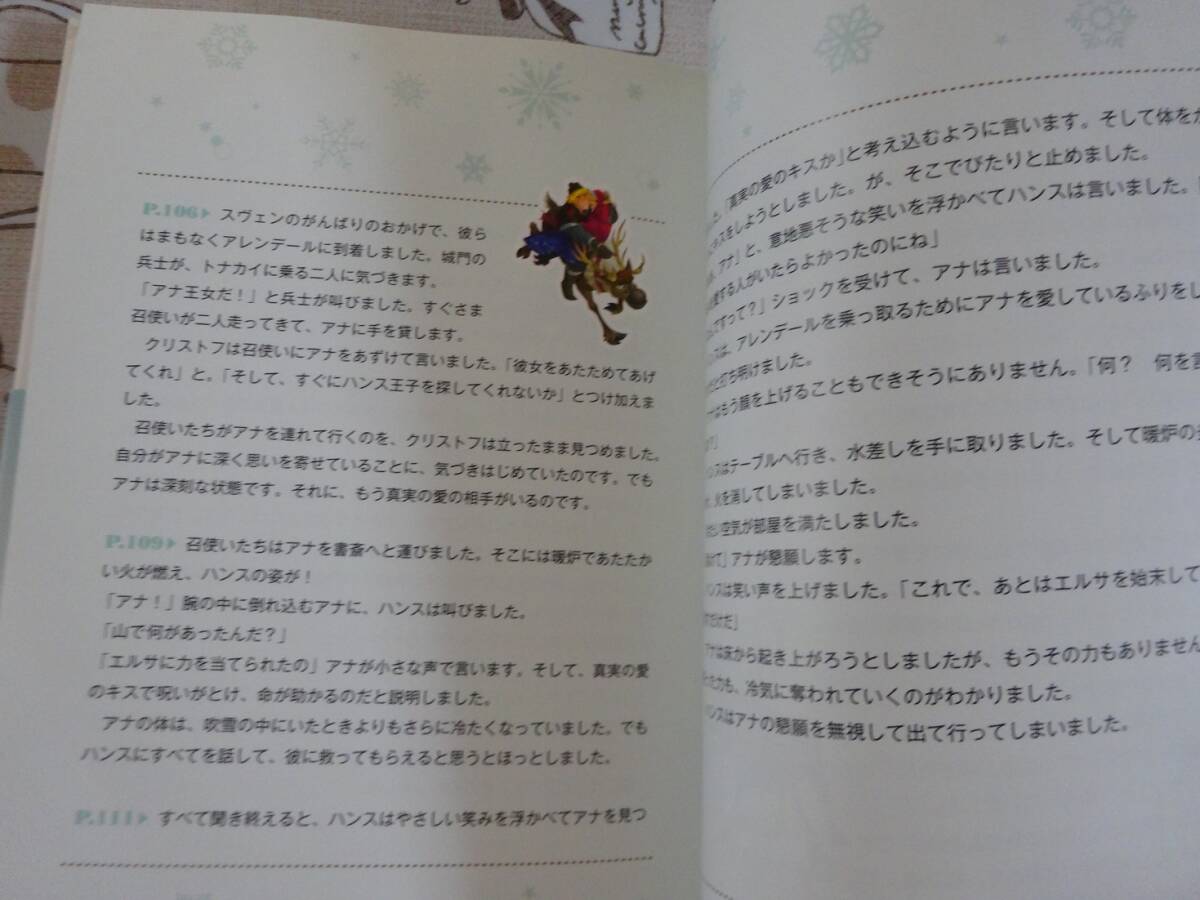 P.106▶ スヴェンのがんばりのおかげで、彼ら
はまもなくアレンデールに到着しました。城門の
兵士が、トナカイに乗る二人に気づきます。
「アナ王女だ！」と兵士が叫びました。すぐさま
召使いが二人走ってきて、アナに手を貸します。
クリストフは召使いにアナをあずけて言いました。「彼女をあたためてあげ
てくれ」と。「そして、すぐにハンス王子を探してくれないか」とつけ加えま
した。
召使いたちがアナを連れて行くのを、クリストフは立ったまま見つめました。
自分がアナに深く思いを寄せていることに、気づきはじめていたのです。でも
アナは深刻な状態です。それに、もう真実の愛の相手がいるのです。
P.109▶ 召使いたちはアナを書斎へと運びました。そこには暖炉であたたか
い火が燃え、ハンスの姿が！
「アナ！」腕の中に倒れ込むアナに、ハンスは叫びました。
「山で何があったんだ？」
「エルサに力を当てられたの」アナが小さな声で言います。そして、真実の愛
のキスで呪いがとけ、命が助かるのだと説明しました。
アナの体は、吹雪の中にいたときよりもさらに冷たくなっていました。でも
ハンスにすべてを話して、彼に救ってもらえると思うとほっとしました。
P.111▶ すべて聞き終えると、ハンスはやさしい笑みを浮かべてアナを見つ
「真実の愛のキスか」と考え込むように言います。そして体を
キスをしようとしました。が、そこでぴたりと止めました。
アナ」と、意地悪そうな笑いを浮かべてハンスは言いました。
する人がいたらよかったのにね」
すって？」ショックを受けて、アナは言いました。
は、アレンデールを乗っ取るためにアナを愛しているふりをし
と打ち明けました。
はもう顔を上げることもできそうにありません。「何？　何を言
」
ンスはテーブルへ行き、水差しを手に取りました。そして暖炉の
、火を消してしまいました。
空気が部屋を満たしました。
て」アナが懇願します。
ンスは笑い声を上げました。「これで、あとはエルサを始末して
だけだ」
アナは床から起き上がろうとしましたが、もうその力もありません
力も、冷気に奪われていくのがわかりました。
ンスはアナの懇願を無視して出て行ってしまいました。